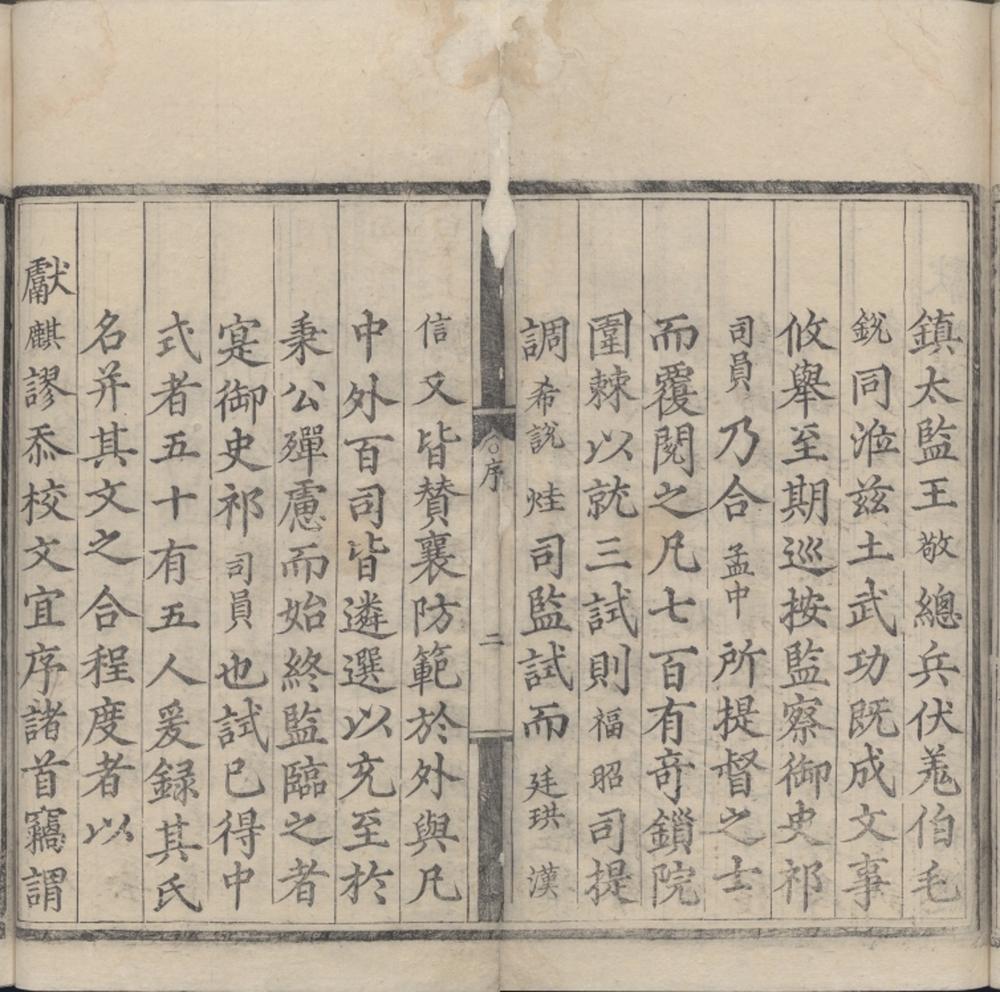 鎮太監王敬總兵伏羗伯毛
銳同涖兹土武功既成文事
攸舉至期巡按監察御史祁
司員乃合孟中所提督之士
而覆閱之凡七百有竒鎖院
圍棘以就三試則福昭司提
調希說烓司監試而廷珙漢
序
二
信又皆贊襄防範於外與凡
中外百司皆遴選以充至於
秉公殫慮而始終監臨之者
寔御史祁司員也試已得中
式者五十有五人爰録其氏
名并其文之合程度者以
獻麒謬忝校文宜序諸首竊謂